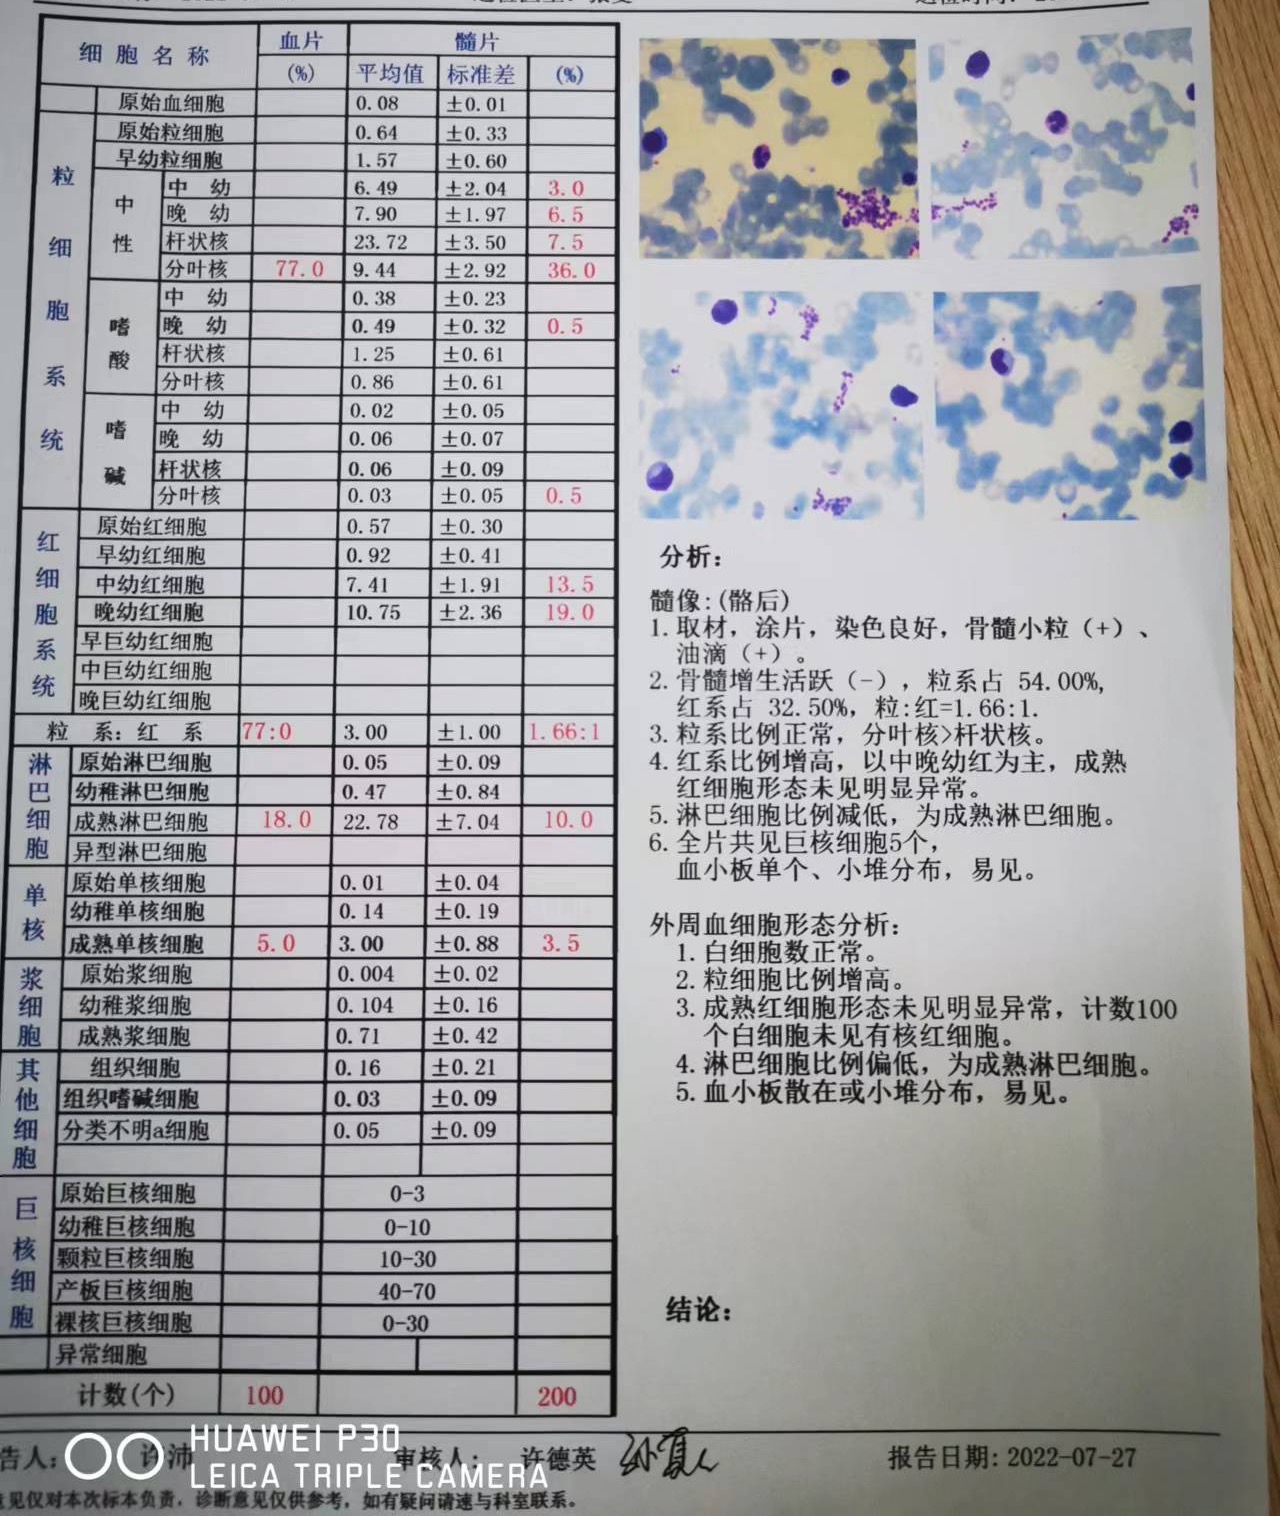 细胞名称 血片 髓片
(%) 平均值 标准差 (%)
原始血细胞 0.08 ±0.01
粒细胞系统
原始粒细胞 0.64 ±0.33
早幼粒细胞 1.57 ±0.60
中性
中幼 6.49 ±2.04 3.0
晚幼 7.90 ±1.97 6.5
杆状核 23.72 ±3.50 7.5
分叶核 77.0 9.44 ±2.92 36.0
嗜酸
中幼 0.38 ±0.23
晚幼 0.49 ±0.32 0.5
杆状核 1.25 ±0.61
分叶核 0.86 ±0.61
嗜碱
中幼 0.02 ±0.05
晚幼 0.06 ±0.07
杆状核 0.06 ±0.09
分叶核 0.03 ±0.05 0.5
红细胞系统
原始红细胞 0.57 ±0.30
早幼红细胞 0.92 ±0.41
中幼红细胞 7.41 ±1.91 13.5
晚幼红细胞 10.75 ±2.36 19.0
早巨幼红细胞
中巨幼红细胞
晚巨幼红细胞
粒系:红系 77:0 3.00 ±1.00 1.66:1
淋巴细胞
原始淋巴细胞 0.05 ±0.09
幼稚淋巴细胞 0.47 ±0.84
成熟淋巴细胞 18.0 22.78 ±7.04 10.0
异型淋巴细胞
单核
原始单核细胞 0.01 ±0.04
幼稚单核细胞 0.14 ±0.19
成熟单核细胞 5.0 3.00 ±0.88 3.5
浆细胞
原始浆细胞 0.004 ±0.02
幼稚浆细胞 0.104 ±0.16
成熟浆细胞 0.71 ±0.42
其他细胞
组织细胞 0.16 ±0.21
组织嗜碱细胞 0.03 ±0.09
分类不明a细胞 0.05 ±0.09
巨核细胞
原始巨核细胞 0-3
幼稚巨核细胞 0-10
颗粒巨核细胞 10-30
产板巨核细胞 40-70
裸核巨核细胞 0-30
异常细胞
计数(个) 100 200
分析:
髓像:(髂后)
1. 取材，涂片，染色良好，骨髓小粒（+）、
油滴（+）。
2. 骨髓增生活跃（-），粒系占 54.00%,
红系占 32.50%，粒:红=1.66:1.
3. 粒系比例正常，分叶核>杆状核。
4. 红系比例增高，以中晚幼红为主，成熟
红细胞形态未见明显异常。
5. 淋巴细胞比例减低，为成熟淋巴细胞。
6. 全片共见巨核细胞5个，
血小板单个、小堆分布，易见。
外周血细胞形态分析:
1. 白细胞数正常。
2. 粒细胞比例增高。
3. 成熟红细胞形态未见明显异常，计数100
个白细胞未见有核红细胞。
4. 淋巴细胞比例偏低，为成熟淋巴细胞。
5. 血小板散在或小堆分布，易见。
结论:
告人: 许沛 审核人: 许德英 报告日期: 2022-07-27
意见仅对本次标本负责，诊断意见仅供参考，如有疑问请速与科室联系。
HUAWEI P30
LEICA TRIPLE CAMERA